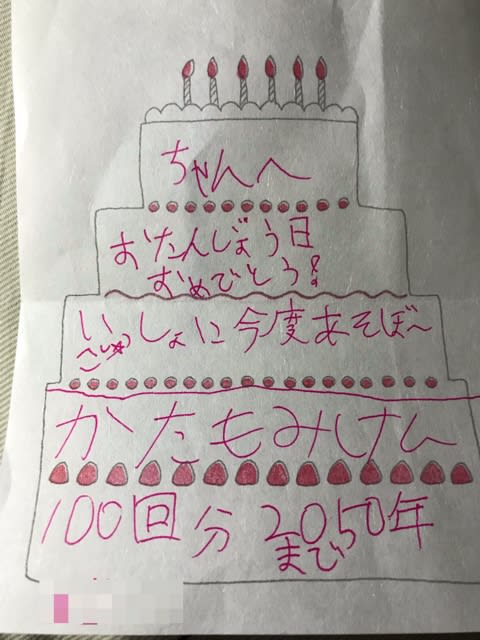 ちゃんへ
おたんじょう日
おめでとう!
いっしょに今度あそぼ〜
かたもみけん
100回分 2050年
まで